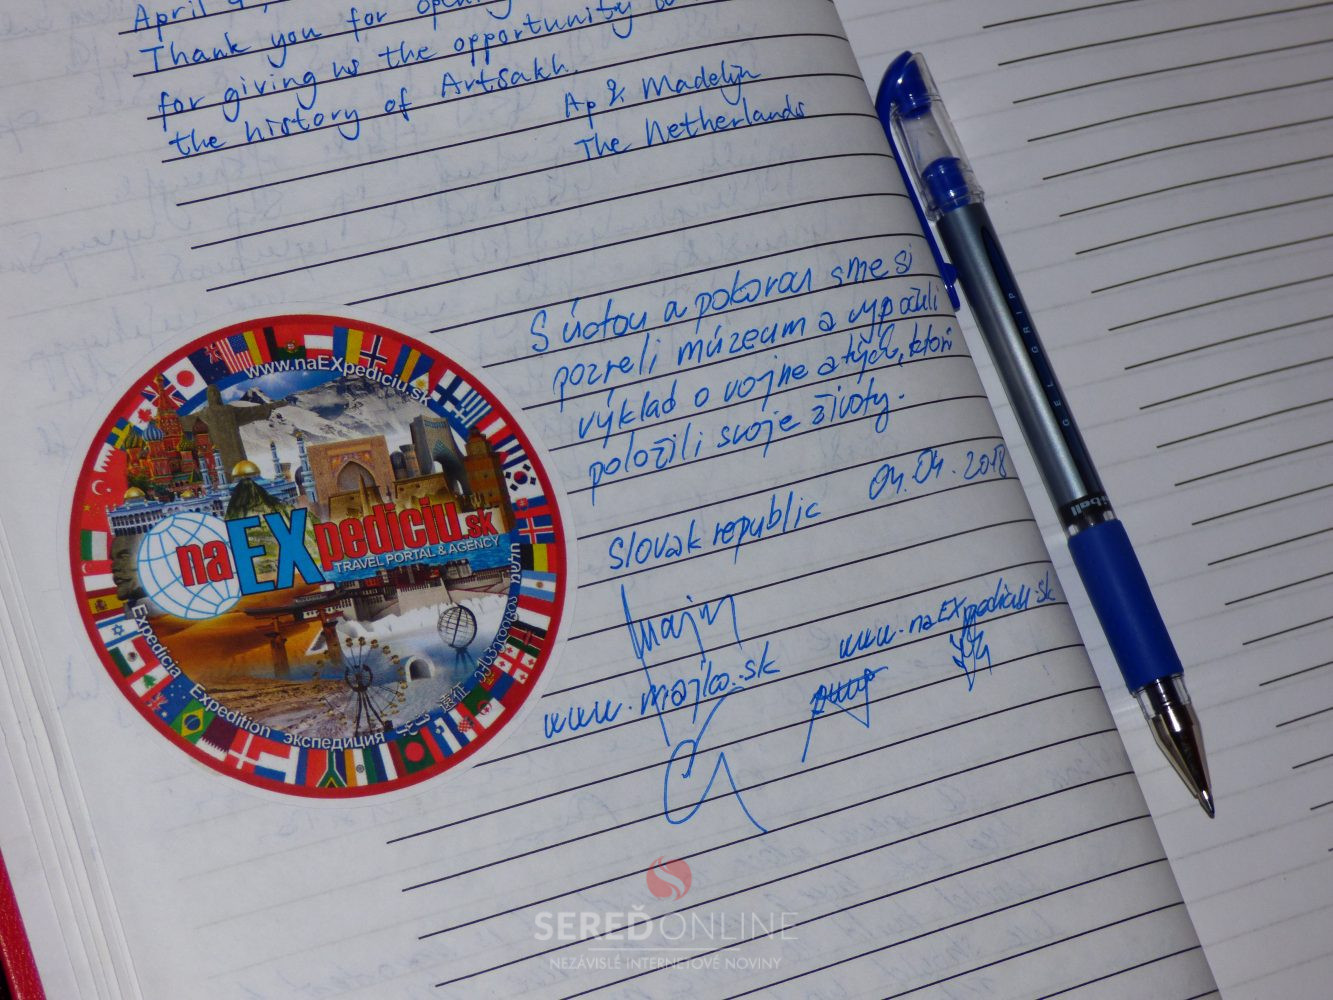 April 4,
Thank you for
for giving us the opportunity
the history of Artsakh.
Ap & Madelijn
The Netherlands
S úctou a pokorou sme si
pozreli múzeum a vypočuli
výklad o vojne a tých, ktorí
položili svoje životy.
04.04.2018
Slovak republic
www.majko.sk
www.naEXpediciu.sk
www.naEXpediciu.sk
naEXpediciu.sk
TRAVEL PORTAL & AGENCY
Expedícia Expedition экспедиция 遠征 ექსპედიცია
GEL GRIP
iball
SEREĎONLINE
NEZÁVISLÉ INTERNETOVÉ NOVINY